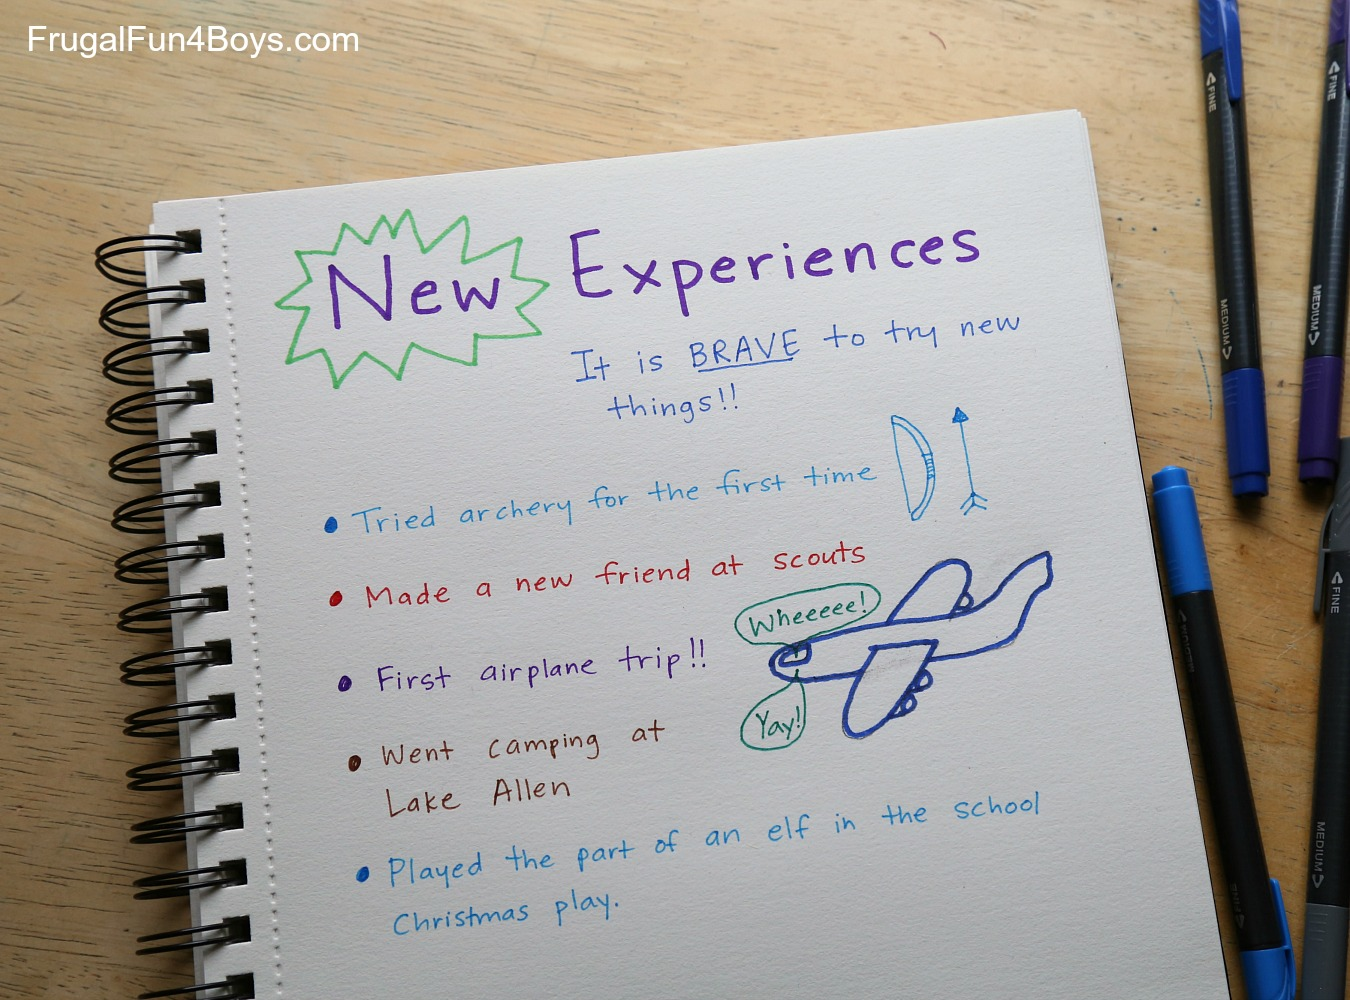 FrugalFun4Boys.com
New Experiences
It is BRAVE to try new
things!!
Tried archery for the first time
Made a new friend at scouts
Wheeeee!
First airplane trip!!
Yay!
Went camping at
Lake Allen
Played the part of an elf in the school
Christmas play.
FINE
MEDIUM
FINE
MEDIUM
MEDIUM
FINE
MEDIUM